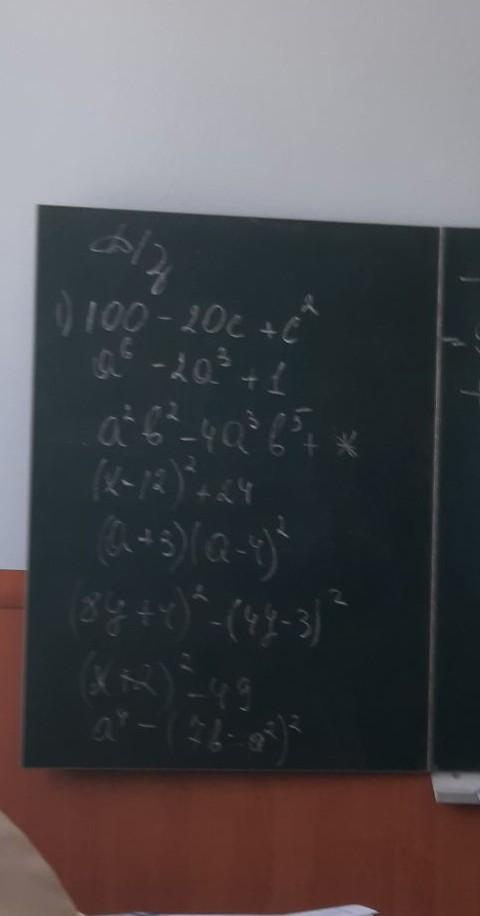 Д/з
1) 100 - 20c + c²
a⁶ - 2a³ + 1
a²b² - 4a³b⁵ + *
(x-12)² + 24
(a+3)(a-4)²
(8y+4)² - (4y-3)²
(x+2)² - 49
a⁴ - (7b-a²)²